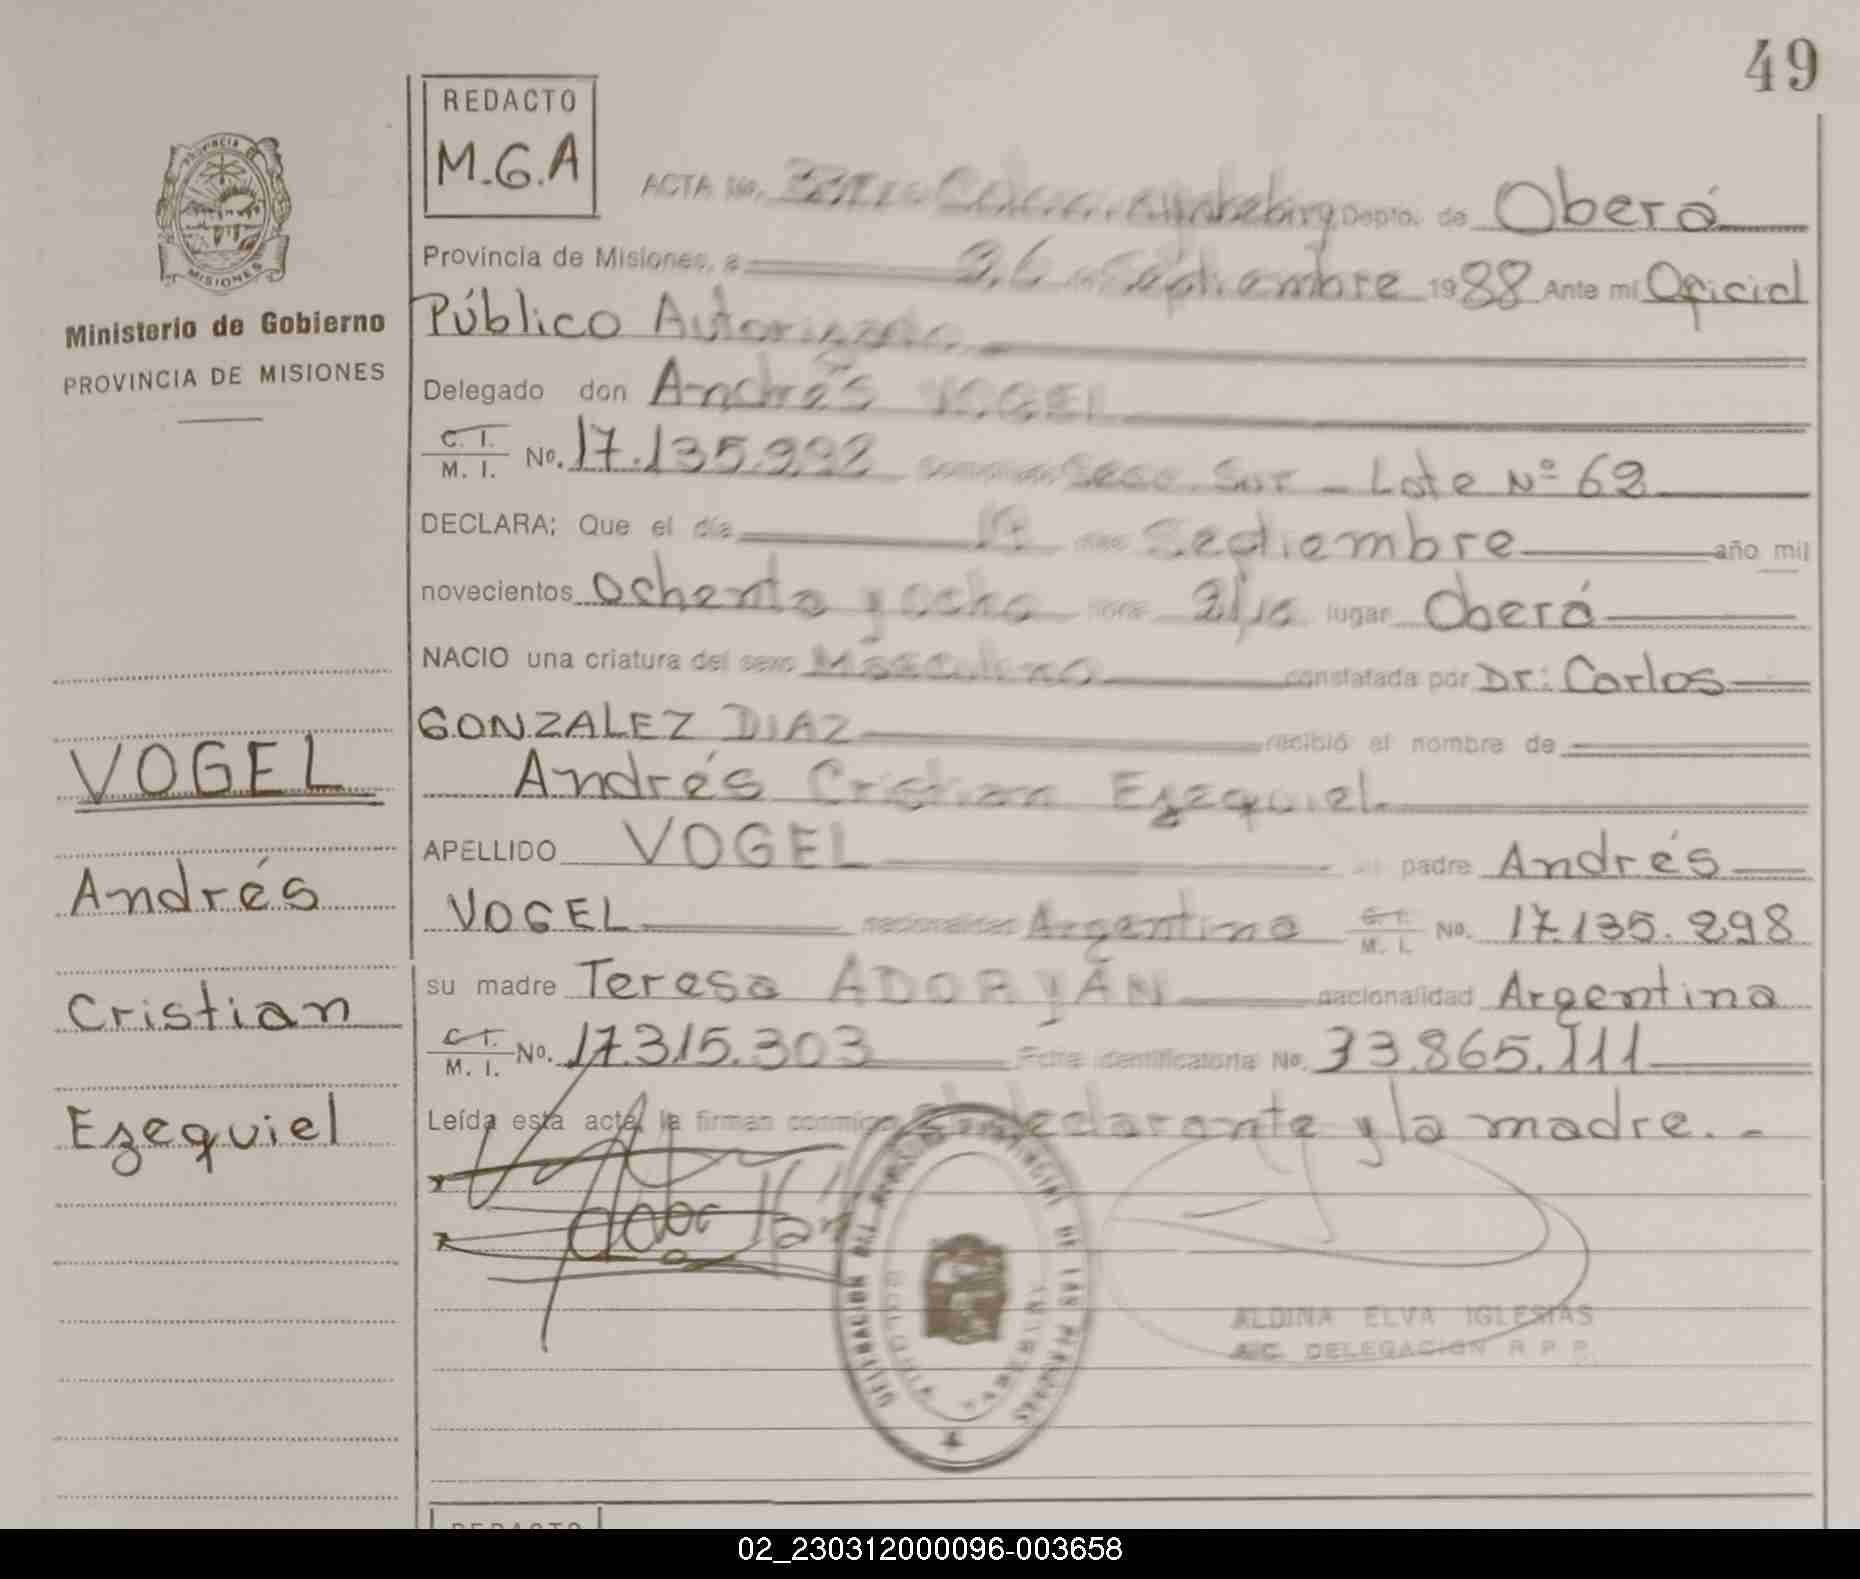 49
REDACTO
M.G.A
ACTA No. Depto. de Oberá
Provincia de Misiones, a Septiembre 1988 Ante mi Oficial
Público Autorizado
Delegado don Andrés VOGEL
C. I.
M. I. No. 17.135. Sur - Lote Nº 62
DECLARA: Que el día Septiembre año mil
novecientos ochenta y ocho hora lugar Oberá
NACIO una criatura del sexo Masculino constatada por Dr: Carlos
GONZALEZ DIAZ recibió el nombre de
Andrés Cristian Ezequiel
APELLIDO VOGEL padre Andrés
VOGEL nacionalidad Argentina C. I. M. I. No. 17.135.298
su madre Teresa ADORYÁN nacionalidad Argentina
C. I.
M. I. No. 17.315.303 Ficha identificatoria No. 33.865.111
Leída esta acta, la firman conmigo el declarante y la madre.-
ALDINA ELVA IGLESIAS
A/C. DELEGACION R P P
PROVINCIA DE
MISIONES
Ministerio de Gobierno
PROVINCIA DE MISIONES
VOGEL
Andrés
Cristian
Ezequiel
REDACTO
02_230312000096-003658